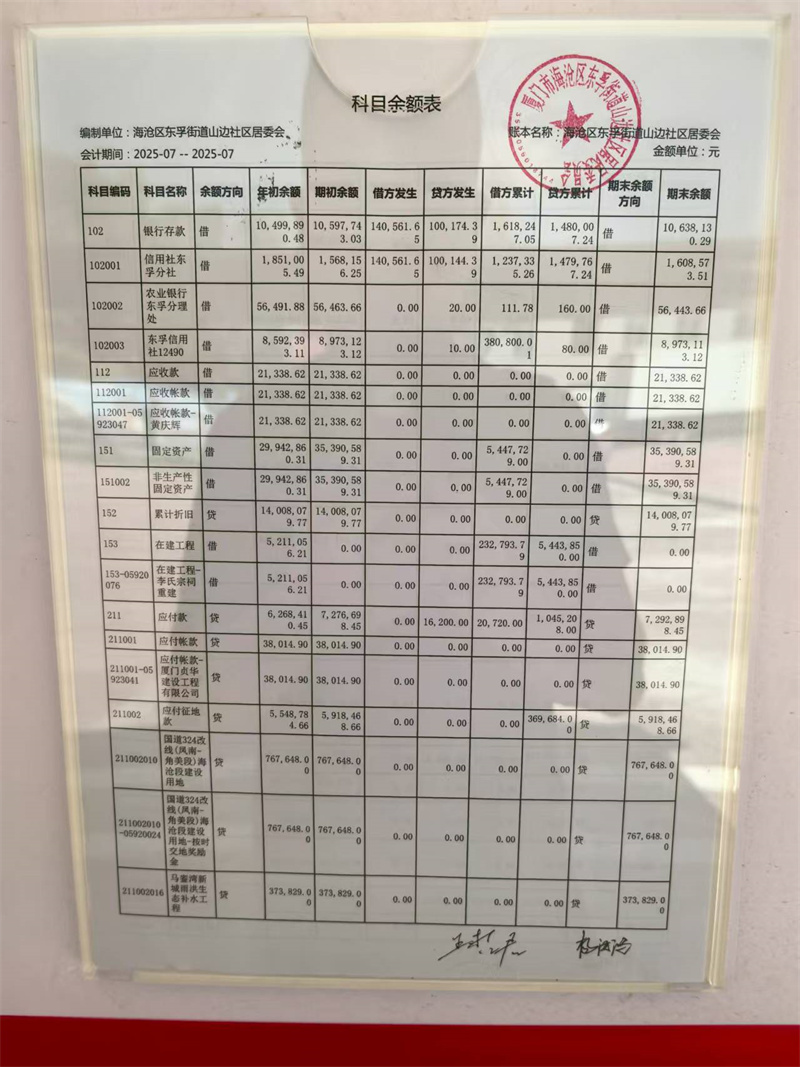 科目余额表
编制单位：海沧区东孚街道山边社区居委会 账本名称：海沧区东孚街道山边社区居委会
会计期间：2025-07 -- 2025-07 金额单位：元
科目编码 科目名称 余额方向 年初余额 期初余额 借方发生 贷方发生 借方累计 贷方累计 期末余额方向 期末余额
102 银行存款 借 10,499,890.48 10,597,743.03 140,561.65 100,174.39 1,618,247.05 1,480,007.24 借 10,638,130.29
102001 信用社东孚分社 借 1,851,005.49 1,568,156.25 140,561.65 100,144.39 1,237,335.26 1,479,767.24 借 1,608,573.51
102002 农业银行东孚分理处 借 56,491.88 56,463.66 0.00 20.00 111.78 160.00 借 56,443.66
102003 东孚信用社12490 借 8,592,393.11 8,973,123.12 0.00 10.00 380,800.01 80.00 借 8,973,113.12
112 应收款 借 21,338.62 21,338.62 0.00 0.00 0.00 0.00 借 21,338.62
112001 应收帐款 借 21,338.62 21,338.62 0.00 0.00 0.00 0.00 借 21,338.62
112001-05923047 应收帐款-黄庆辉 借 21,338.62 21,338.62 0.00 0.00 0.00 0.00 借 21,338.62
151 固定资产 借 29,942,860.31 35,390,589.31 0.00 0.00 5,447,729.00 0.00 借 35,390,589.31
151002 非生产性固定资产 借 29,942,860.31 35,390,589.31 0.00 0.00 5,447,729.00 0.00 借 35,390,589.31
152 累计折旧 贷 14,008,079.77 14,008,079.77 0.00 0.00 0.00 0.00 贷 14,008,079.77
153 在建工程 借 5,211,056.21 0.00 0.00 0.00 232,793.79 5,443,850.00 借 0.00
153-05920076 在建工程-李氏宗祠重建 借 5,211,056.21 0.00 0.00 0.00 232,793.79 5,443,850.00 借 0.00
211 应付款 贷 6,268,410.45 7,276,698.45 0.00 16,200.00 20,720.00 1,045,208.00 贷 7,292,898.45
211001 应付帐款 贷 38,014.90 38,014.90 0.00 0.00 0.00 0.00 贷 38,014.90
211001-05923041 应付帐款-厦门贞华建设工程有限公司 贷 38,014.90 38,014.90 0.00 0.00 0.00 0.00 贷 38,014.90
211002 应付征地款 贷 5,548,784.66 5,918,468.66 0.00 0.00 0.00 369,684.00 贷 5,918,468.66
211002010 国道324改线(凤南-角美段)海沧段建设用地 贷 767,648.00 767,648.00 0.00 0.00 0.00 0.00 贷 767,648.00
211002010-05920024 国道324改线(凤南-角美段)海沧段建设用地-按时交地奖励金 贷 767,648.00 767,648.00 0.00 0.00 0.00 0.00 贷 767,648.00
211002016 马銮湾新城雨洪生态补水工程 贷 373,829.00 373,829.00 0.00 0.00 0.00 0.00 贷 373,829.00